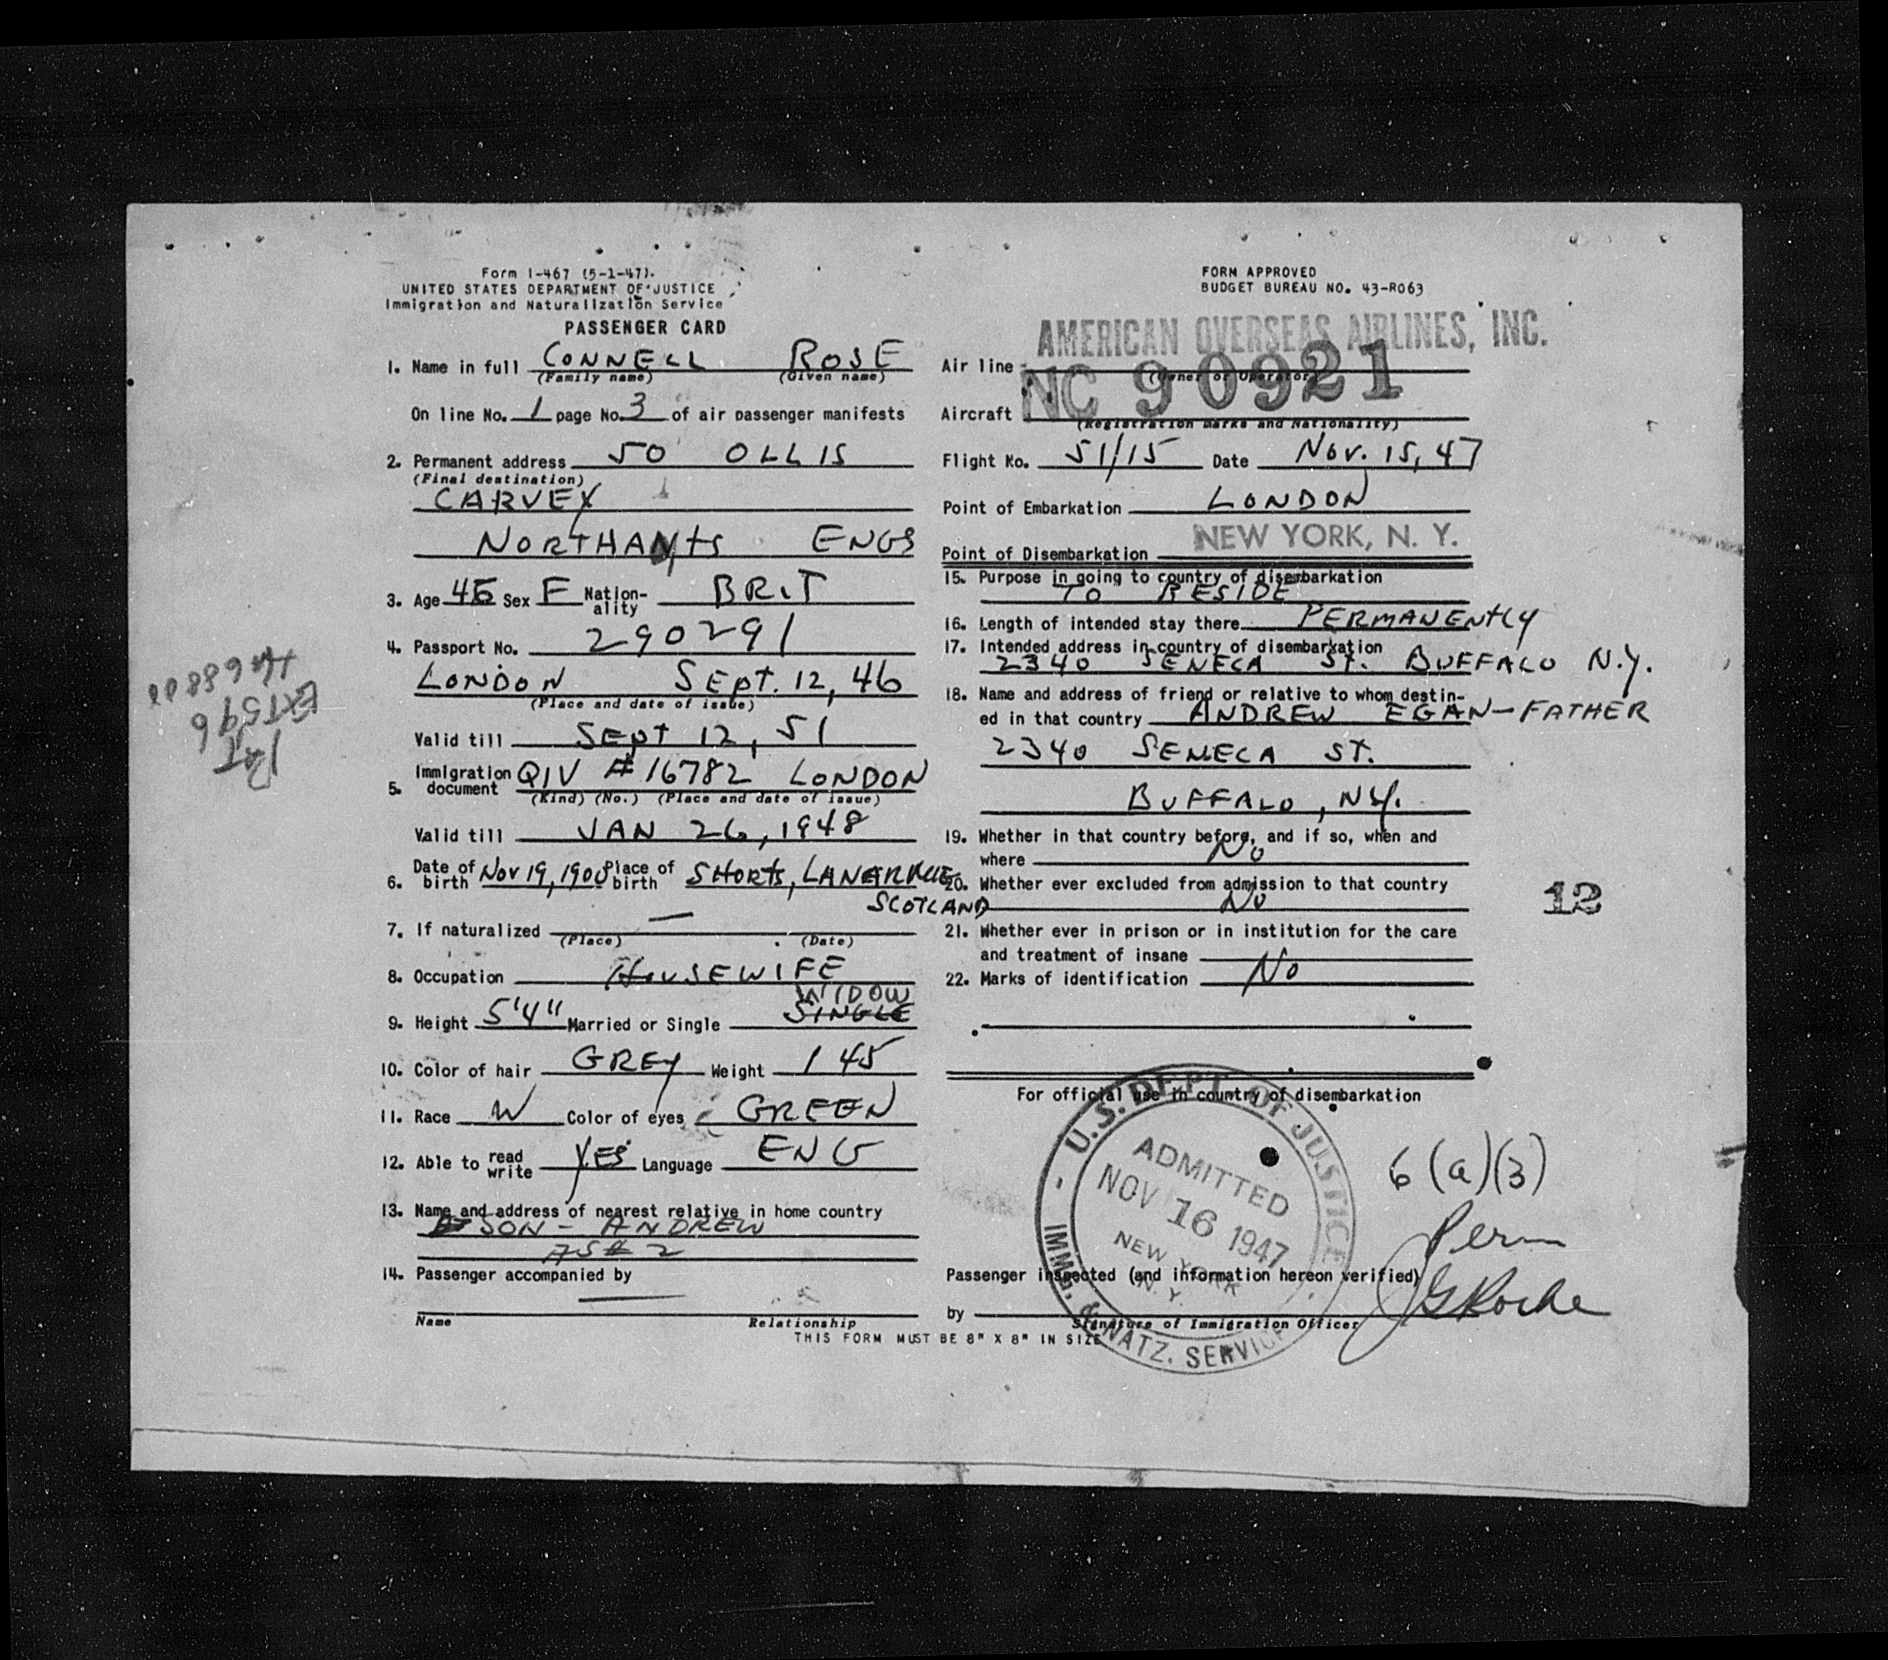 Form I-467 (5-1-47).
UNITED STATES DEPARTMENT OF JUSTICE
Immigration and Naturalization Service
PASSENGER CARD
1. Name in full CONNELL ROSE
(Family name) (Given name)
On line No. 1 page No. 3 of air passenger manifests
2. Permanent address 50 OLLIS
(Final destination)
CARVEX
NORTHANtS ENGS
3. Age 45 Sex F Nation-ality BRIT
4. Passport No. 290291
LONDON SEpt. 12, 46
(Place and date of issue)
Valid till SEpt 12, 51
5. Immigration document QIV # 16782 LONDON
(Kind) (No.) (Place and date of issue)
Valid till JAN 26, 1948
6. Date of birth Nov 19, 190 Place of birth SHORtS,
SCOTLAND
7. If naturalized —
(Place) (Date)
8. Occupation HOUSEWIFE
WIDOW
9. Height 5'4" Married or Single SINGLE
10. Color of hair GREY Weight 145
11. Race W Color of eyes GREEN
12. Able to read write YES Language ENG
13. Name and address of nearest relative in home country
SON - ANDREW
AS # 2
14. Passenger accompanied by
—
Name Relationship
THIS FORM MUST BE 8" X 8" IN SIZE
FORM APPROVED
BUDGET BUREAU NO. 43-R063
AMERICAN OVERSEAS AIRLINES, INC.
Air line
(Owner or Operator)
Aircraft NC 90921
(Registration marks and Nationality)
Flight No. 51/15 Date Nov. 15, 47
Point of Embarkation LONDON
Point of Disembarkation NEW YORK, N. Y.
15. Purpose in going to country of disembarkation
TO RESIDE
16. Length of intended stay there PERMANENtLY
17. Intended address in country of disembarkation
2340 SENECA St. BUFFALO N.Y.
18. Name and address of friend or relative to whom destin-
ed in that country ANDREW EGAN-FATHER
2340 SENECA St.
BUFFALO, NY.
19. Whether in that country before, and if so, when and
where No
20. Whether ever excluded from admission to that country
No
21. Whether ever in prison or in institution for the care
and treatment of insane
22. Marks of identification No
For official use in country of disembarkation
U.S. DEPT. OF JUSTICE
ADMITTED
NOV 16 1947
NEW YORK
N. Y.
IMMG. & NATZ. SERVICE
6 (a)(3)
Perm
Passenger inspected (and information hereon verified)
by JG Roche
Signature of Immigration Officer
12
EXT 596